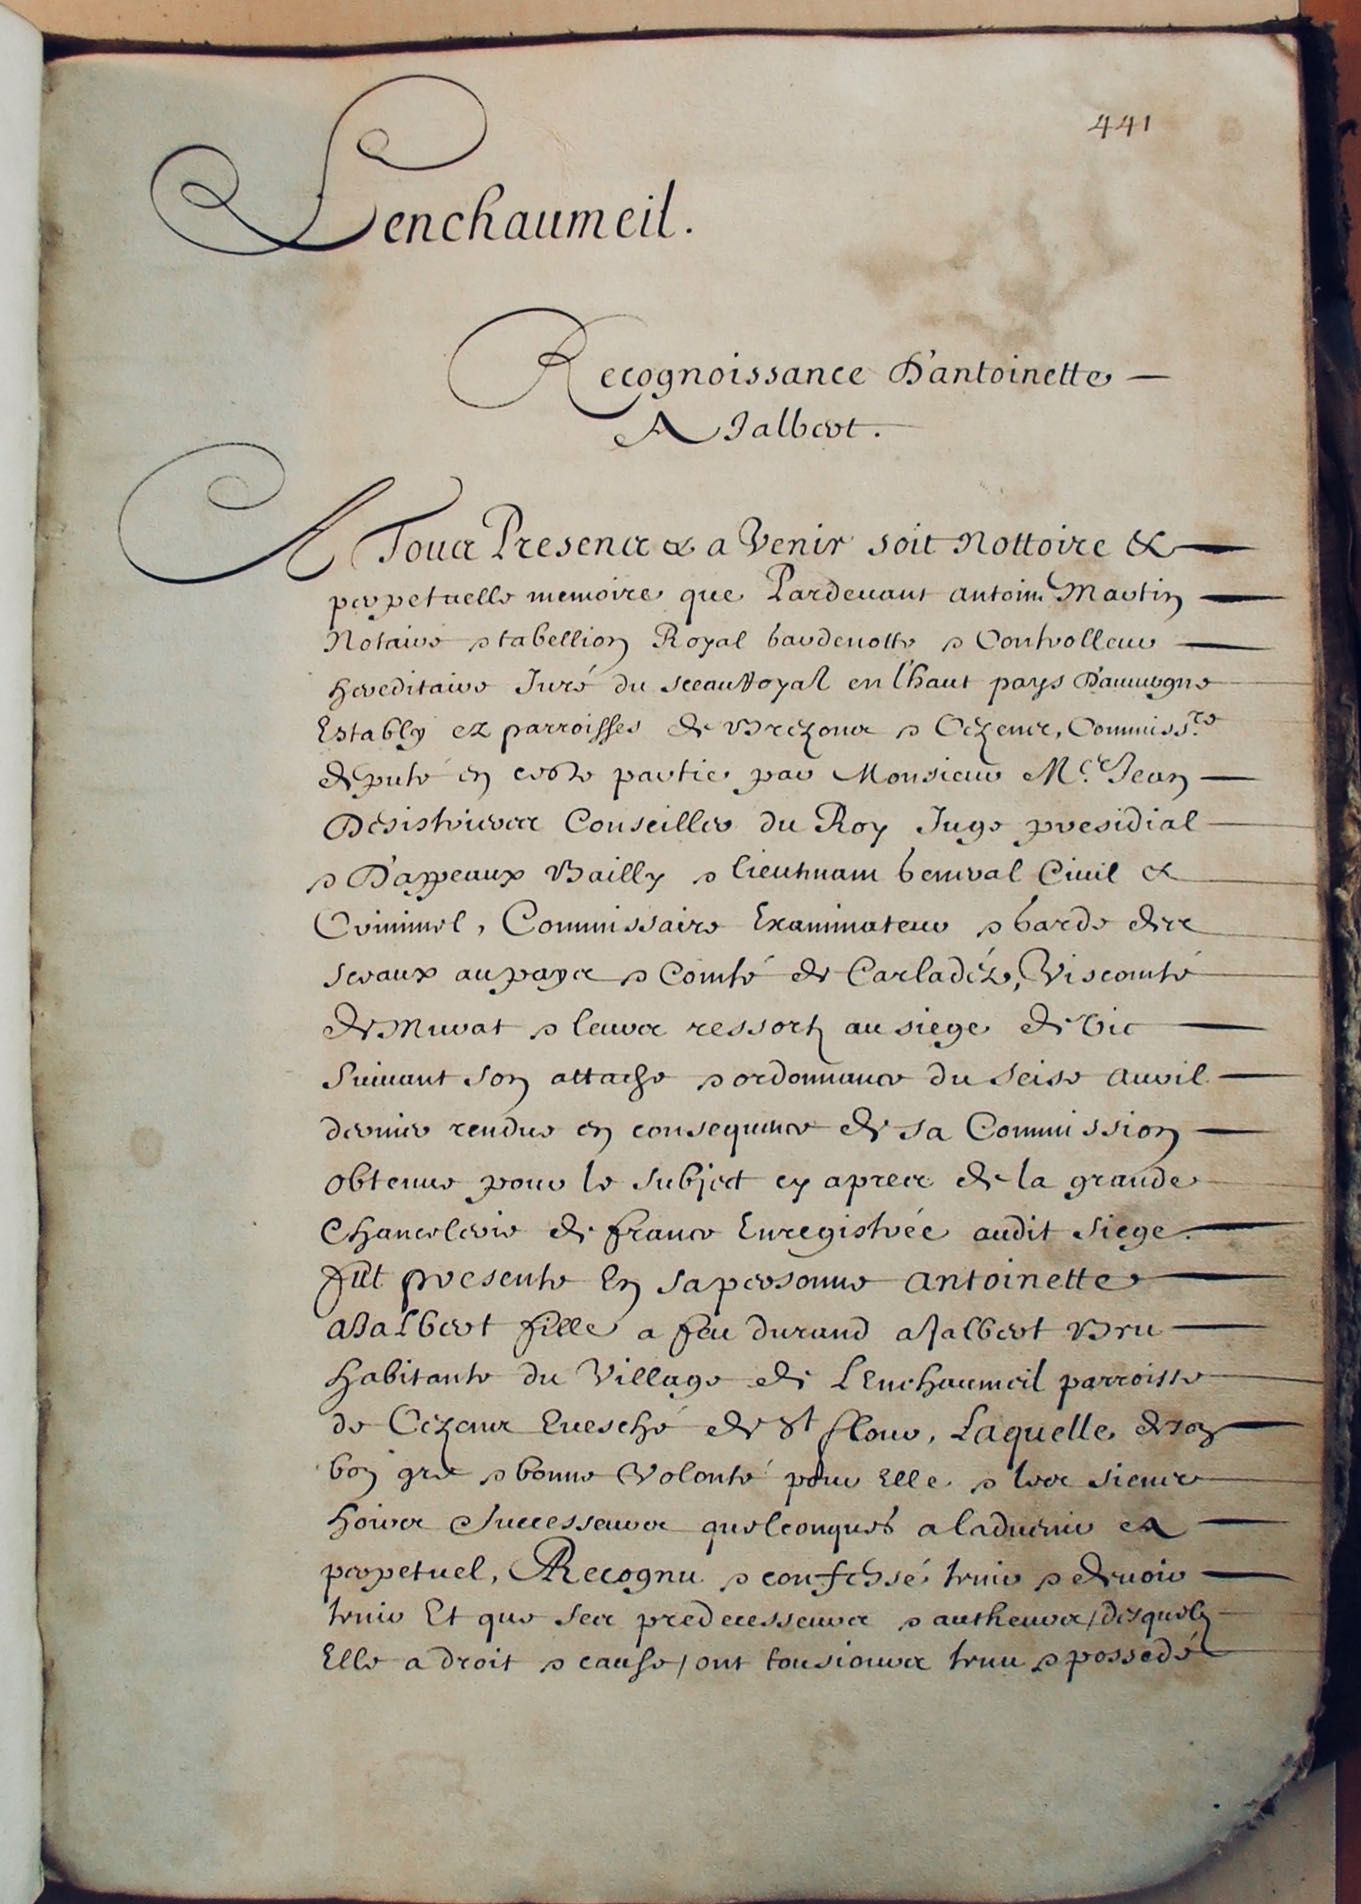 441
Lenchaumeil.
Recognoissance D'antoinette
AJalbert.
A Tous Presens & a Venir soit Nottoire &
perpetuelle memoire que Pardevant antoine Martin
Notaire & tabellion Royal gardenotte & Controlleur
hereditaire Juré du sceau Royal en l'haut pays D'auvergne
Estably ez parroisses de Brezons & Cezens, Commiss.re
deputé en ceste partie par Monsieur M.e Jean
Desistrieres Conseiller du Roy Juge presidial
& D'appeaux Bailly & lieutenant general Civil &
Criminel, Commissaire Examinateur & garde des
sceaux au pays & Comté de Carladéz, Viscomté
de Murat & leurs ressortz au siege de Vic
suivant son attache & ordonnance du seise avril
dernier rendue en consequence de sa Commission
obtenue pour le subject cy apres de la grande
Chancelerie de france Enregistrée audit siege.
fut presente En sa personne antoinette
aJalbert fille a feu durand aJalbert Bru
habitante du Village de LEnchaumeil parroisse
de Cezens Evesché de St flour, Laquelle de son
bon gré & bonne Volonté pour Elle & les siens
hoirs Successeurs quelconques a ladvenir &
perpetuel, A Recognu & confessé tenir & devoir
tenir Et que ses predecesseurs & autheurs / desquelz
Elle a droit & cause / ont tousiours tenu & possedé